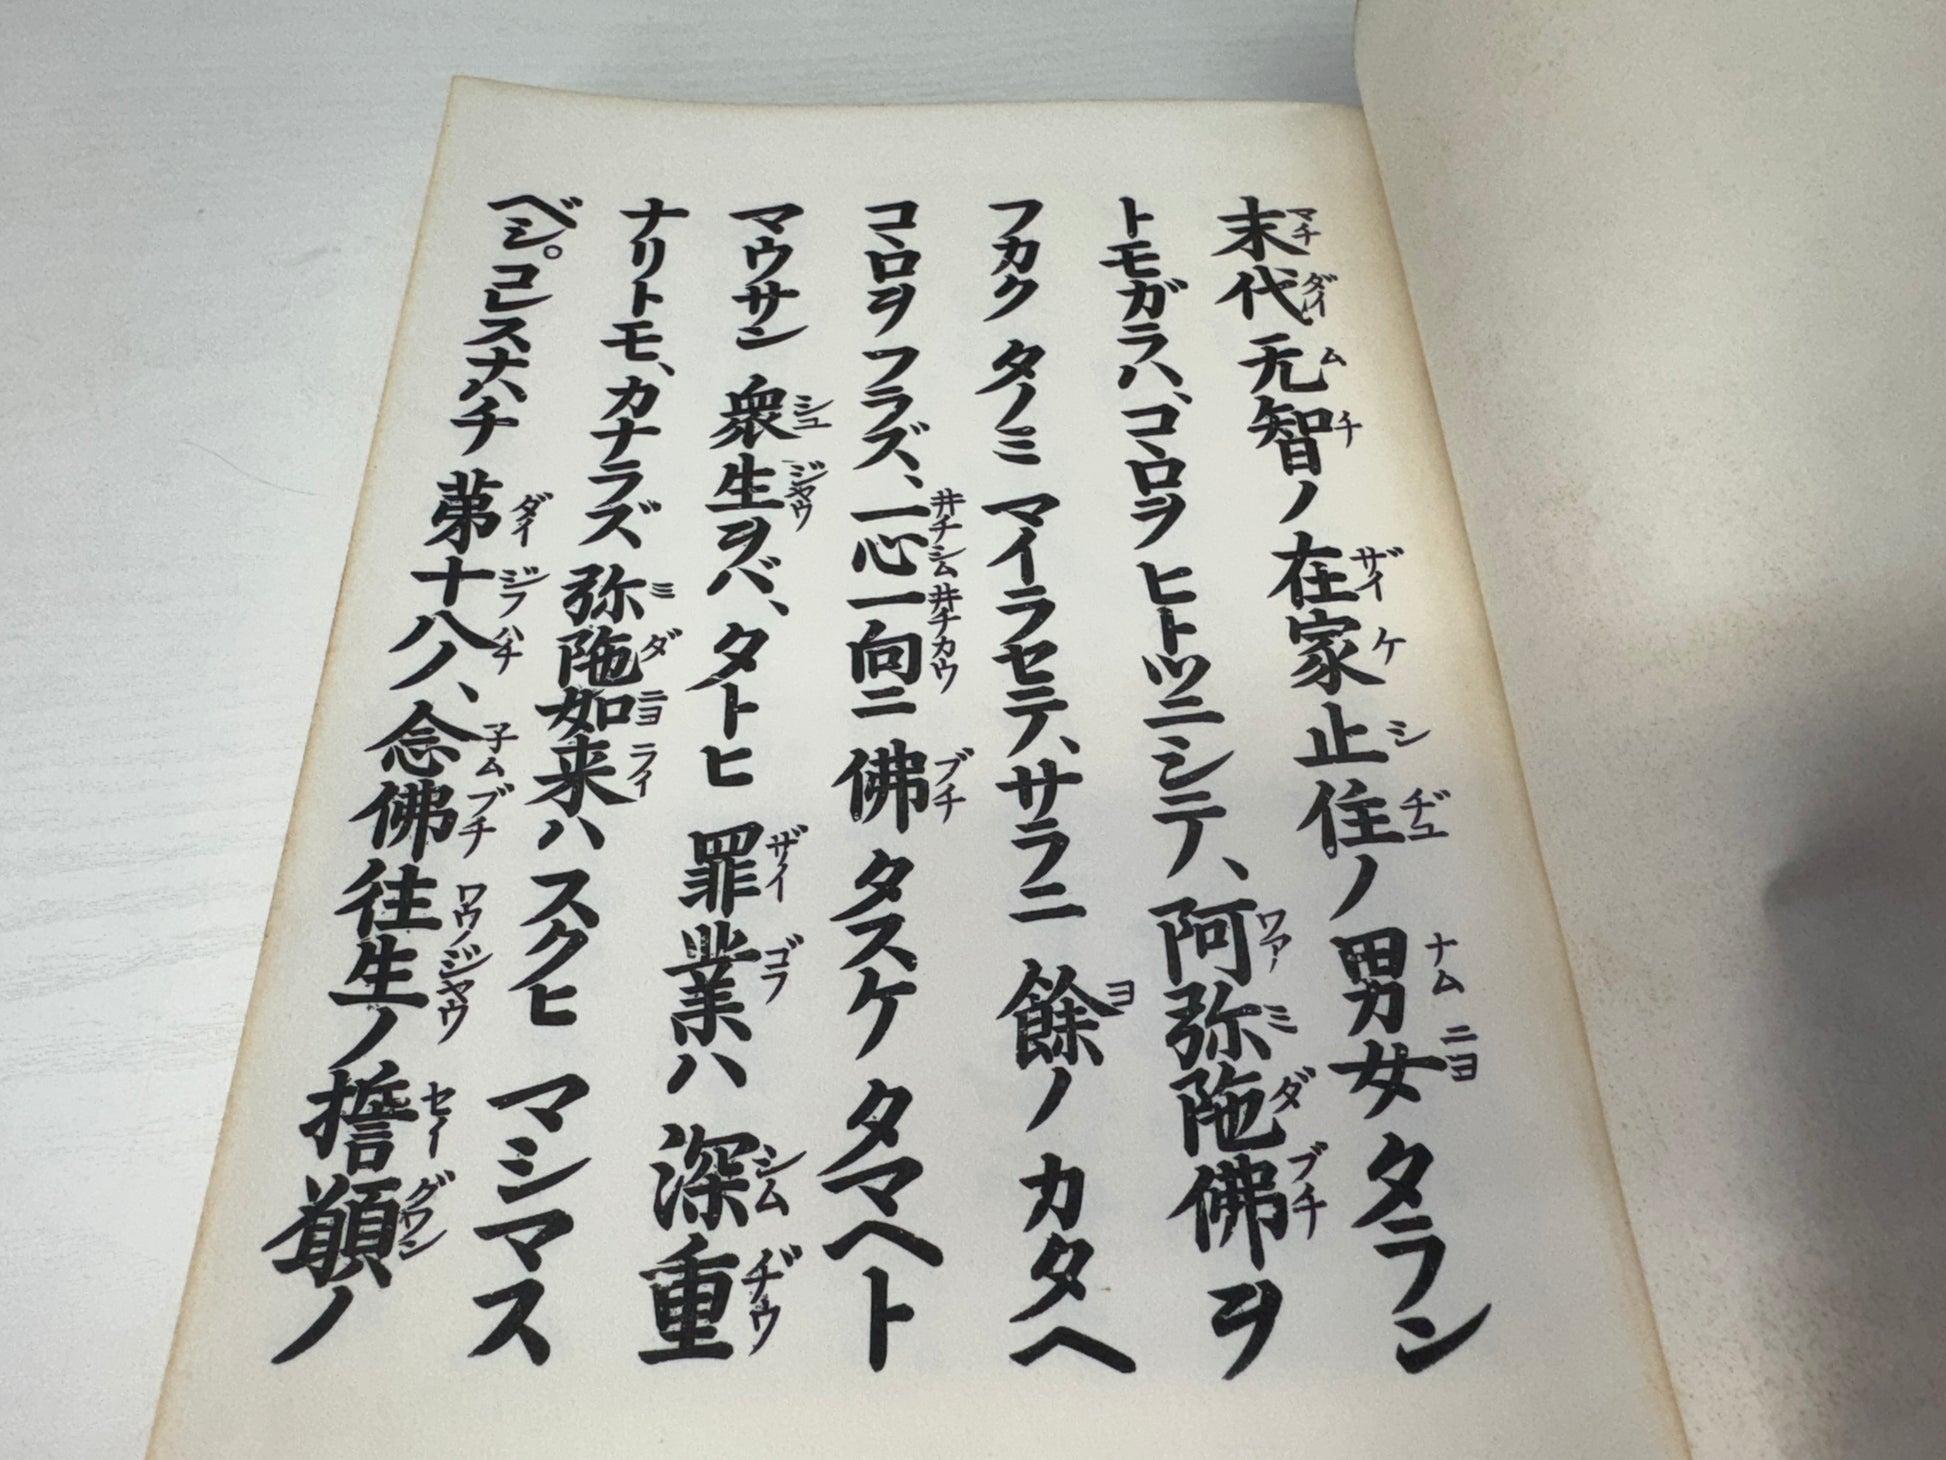 末代无智ノ在家止住ノ男女タラン
トモガラハ、コヽロヲヒトツニシテ、阿弥陁佛ヲ
フカクタノミマイラセテ、サラニ餘ノカタヘ
コヽロヲフラズ、一心一向ニ佛タスケタマヘト
マウサン衆生ヲバ、タトヒ罪業ハ深重
ナリトモ、カナラズ弥陁如来ハスクヒマシマス
ベシ。コレスナハチ苐十八ノ、念佛往生ノ誓願ノ